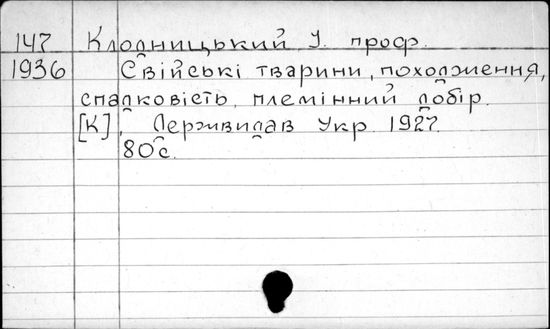 147 Клодницький І. проф.
1936 Свійські тварини, походження,
спадковість, племінний добір.
[К], Держвидав Укр. 1927.
80 с.